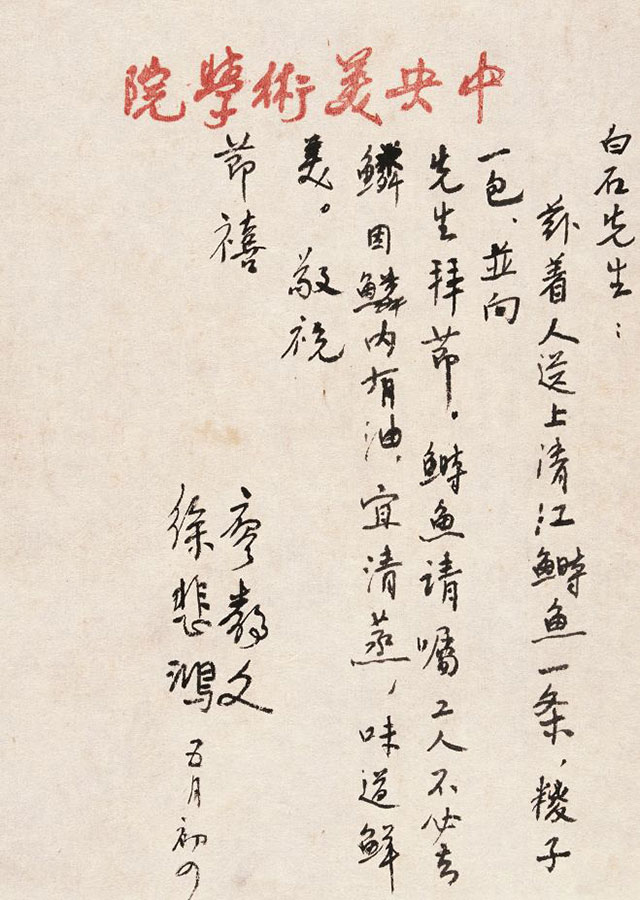 中央美術學院
白石先生：
兹着人送上清江鰣魚一条，糭子
一包、並向
先生拜節。鰣魚請嘱工人不必去
鱗因鱗内有油，宜清蒸，味道鮮
美。敬祝
節禧
廖静文
徐悲鴻 五月初四